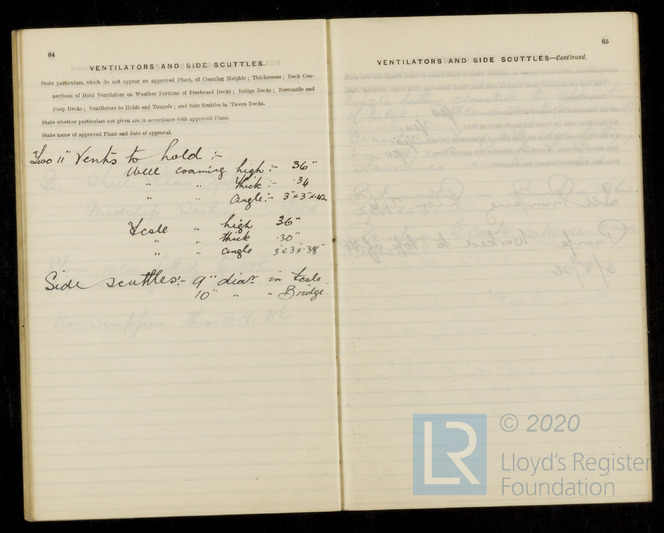 64
VENTILATORS AND SIDE SCUTTLES.
State particulars, which do not appear on approved Plans, of Coaming Heights; Thicknesses; Deck Con-
nections of Hold Ventilators on Weather Portions of Freeboard Decks; Bridge Decks; Forecastle and
Poop Decks; Ventilators to Holds and Tunnels; and Side Scuttles in 'Tween Decks.
State whether particulars not given are in accordance with approved Plans.
State name of approved Plans and date of approval.
Two 11" Vents to hold :-
Well coaming high :- 36"
" " thick :- .34
" " angle :- 3"x3"x.42
Fcsle " high 36"
" " thick .30"
" " angle 3"x3"x.38"
Side scuttles :- 9" diar in Fcsle
10" " " Bridge
65
VENTILATORS AND SIDE SCUTTLES—Continued.
LR
© 2020
Lloyd's Register
Foundation